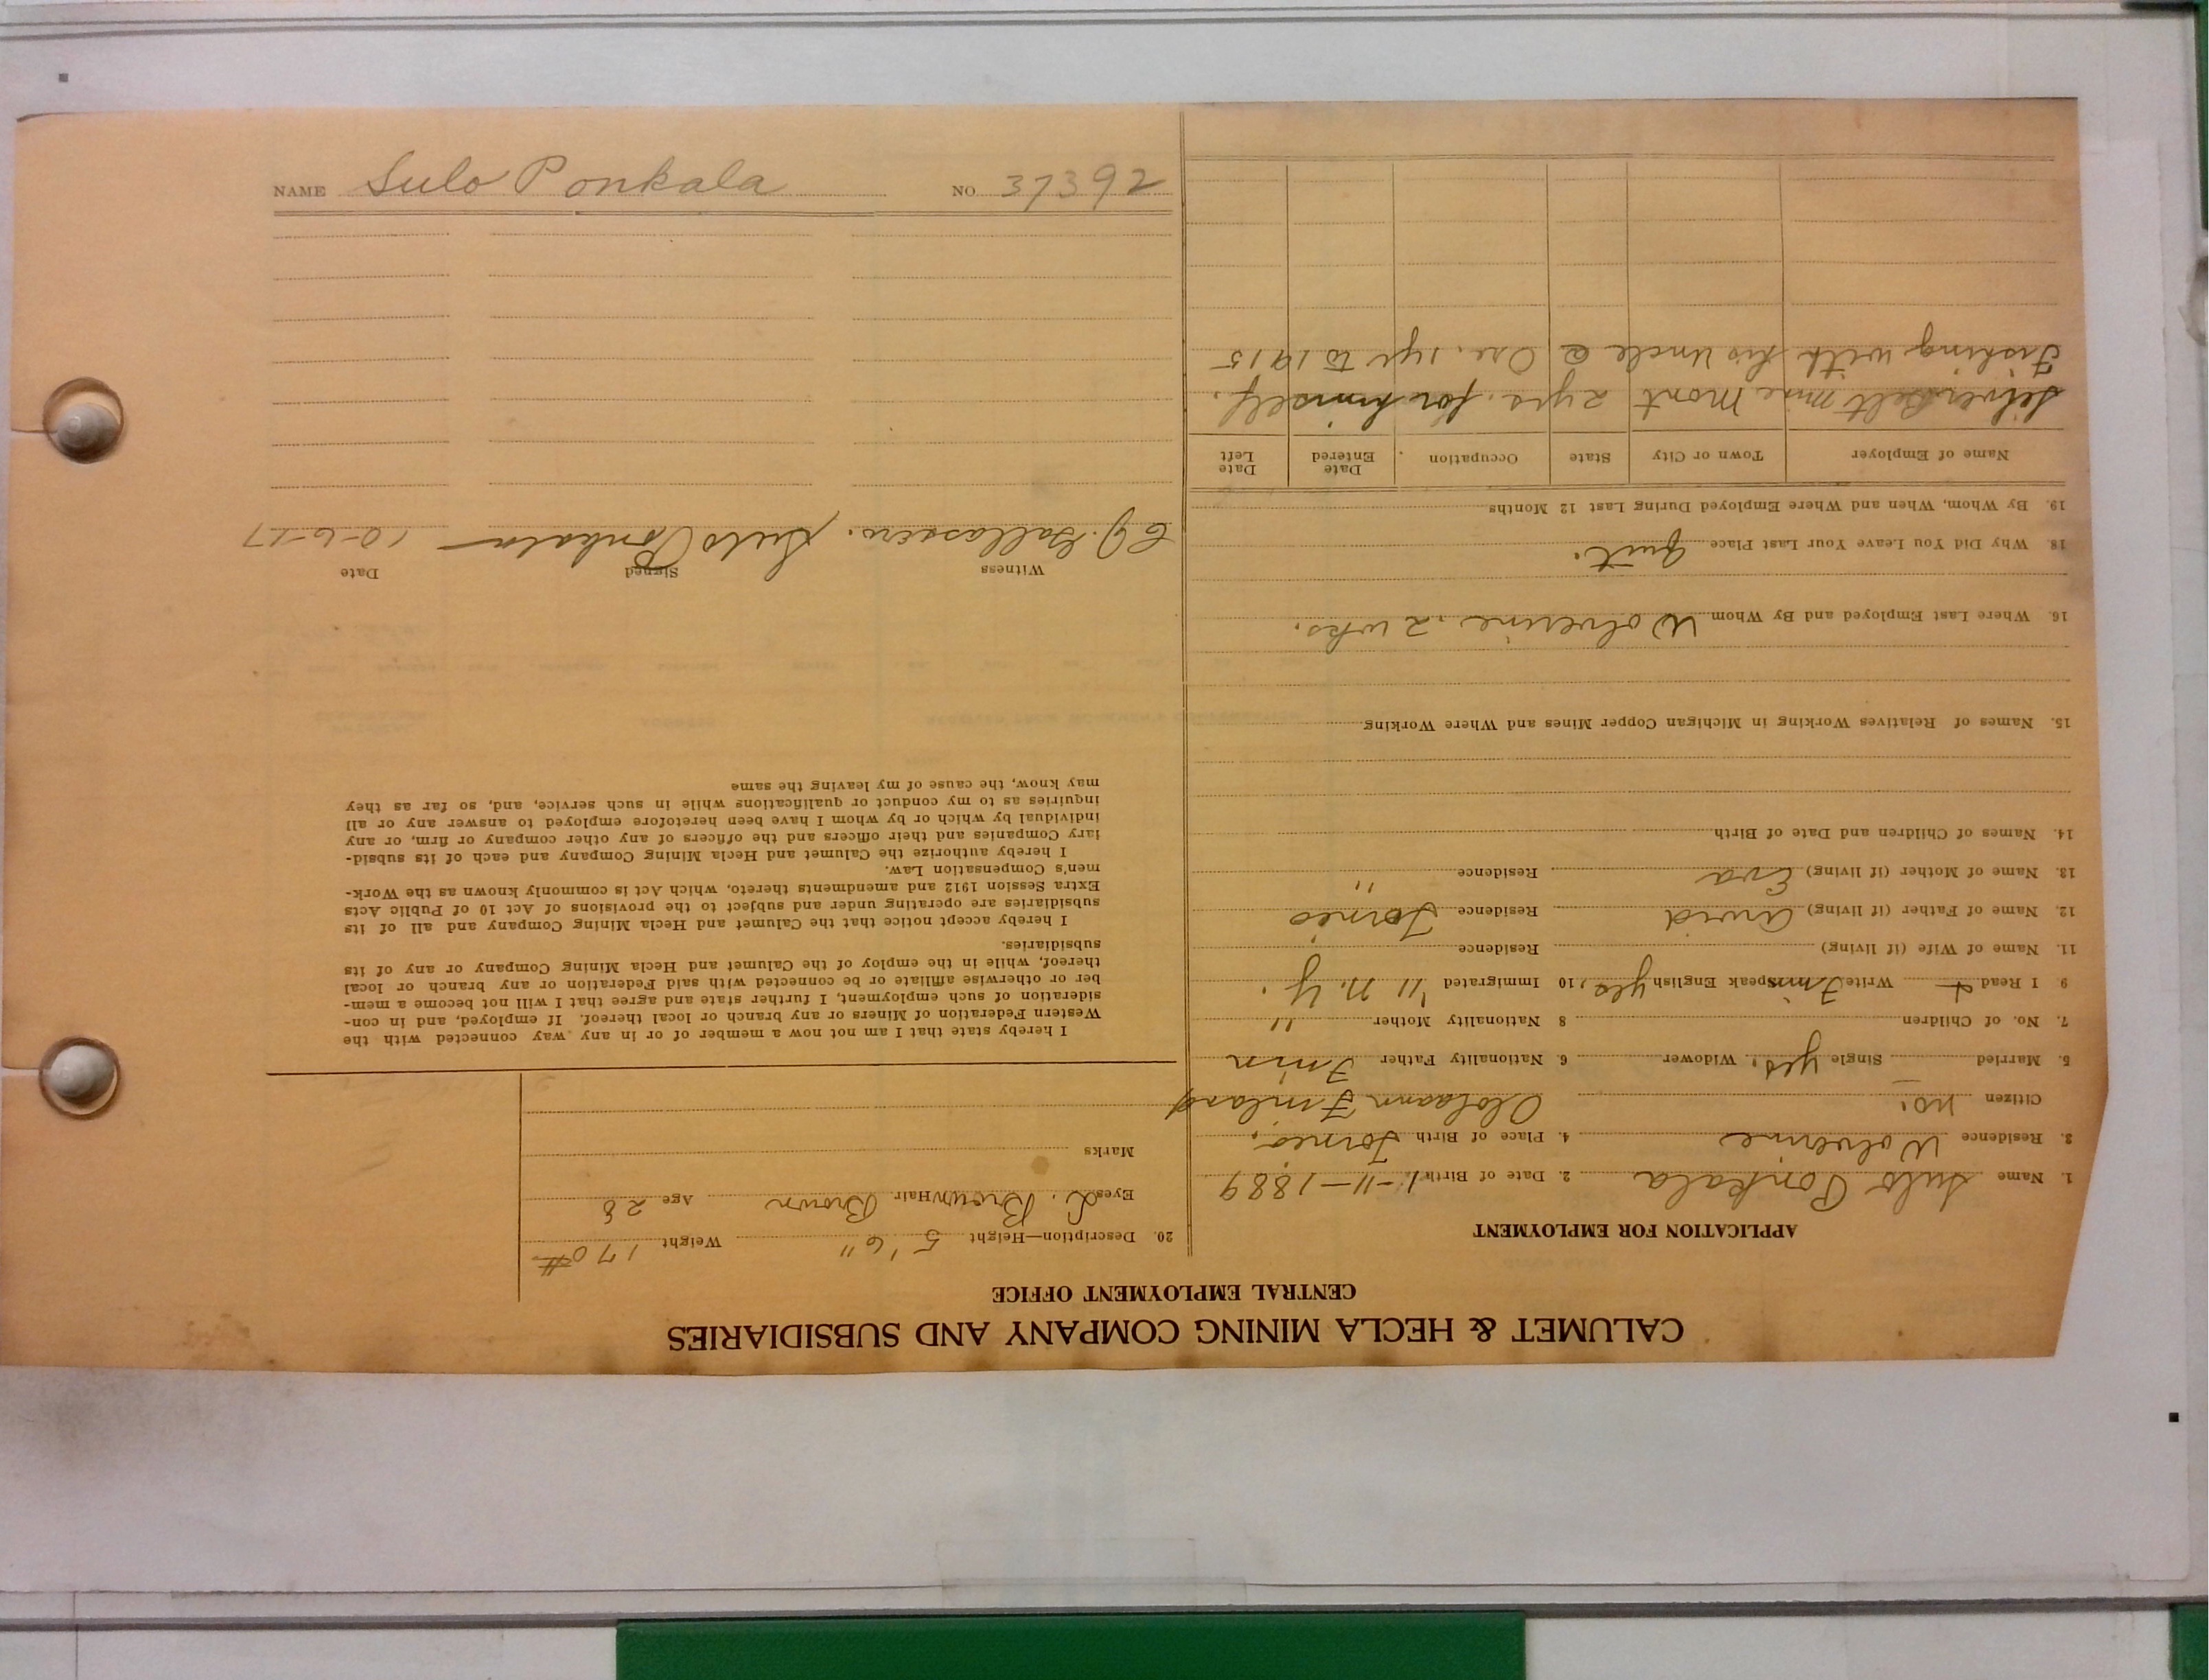 CALUMET & HECLA MINING COMPANY AND SUBSIDIARIES
CENTRAL EMPLOYMENT OFFICE
APPLICATION FOR EMPLOYMENT
1. Name Sulo Ponkala 2. Date of Birth 1-11-1889
3. Residence Wolverine 4. Place of Birth Torneo,
Citizen no. Finland
5. Married Single yes. Widower 6. Nationality Father Finn
7. No. of Children 8 Nationality Mother "
9 I Read & Write Finn Speak English yes. 10 Immigrated '11 N.Y.
11. Name of Wife (if living) Residence
12. Name of Father (if living) Arvid Residence Torneo
13. Name of Mother (if living) Eva Residence "
14. Names of Children and Date of Birth
15. Names of Relatives Working in Michigan Copper Mines and Where Working
16. Where Last Employed and By Whom Wolverine. 2 wks.
18. Why Did You Leave Your Last Place quit.
19. By Whom, When and Where Employed During Last 12 Months
Name of Employer Town or City State Occupation Date Entered Date Left
Silver Belt mine Mont 2 yrs. for himself.
Fishing with his Uncle @ Ore. 1 yr to 1915
20. Description—Height 5'6" Weight 170#
Eyes L. Brown Hair Brown Age 28
Marks
I hereby state that I am not now a member of or in any way connected with the
Western Federation of Miners or any branch or local thereof. If employed, and in con-
sideration of such employment, I further state and agree that I will not become a mem-
ber or otherwise affiliate or be connected with said Federation or any branch or local
thereof, while in the employ of the Calumet and Hecla Mining Company or any of its
subsidiaries.
I hereby accept notice that the Calumet and Hecla Mining Company and all of its
subsidiaries are operating under and subject to the provisions of Act 10 of Public Acts
Extra Session 1912 and amendments thereto, which Act is commonly known as the Work-
men's Compensation Law.
I hereby authorize the Calumet and Hecla Mining Company and each of its subsid-
iary Companies and their officers and the officers of any other company or firm, or any
individual by which or by whom I have been heretofore employed to answer any or all
inquiries as to my conduct or qualifications while in such service, and, so far as they
may know, the cause of my leaving the same
Witness Signed Date
Sulo Ponkala 10-6-17
NAME Sulo Ponkala NO. 37392